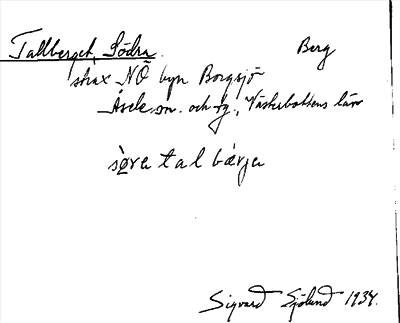 Tallberget, Södra. Berg
strax NÖ byn Borgsjö
Åsele sn. och tg., Västerbottens län
sø̀ra tal bærja
Sigvard Sjölund 1934.